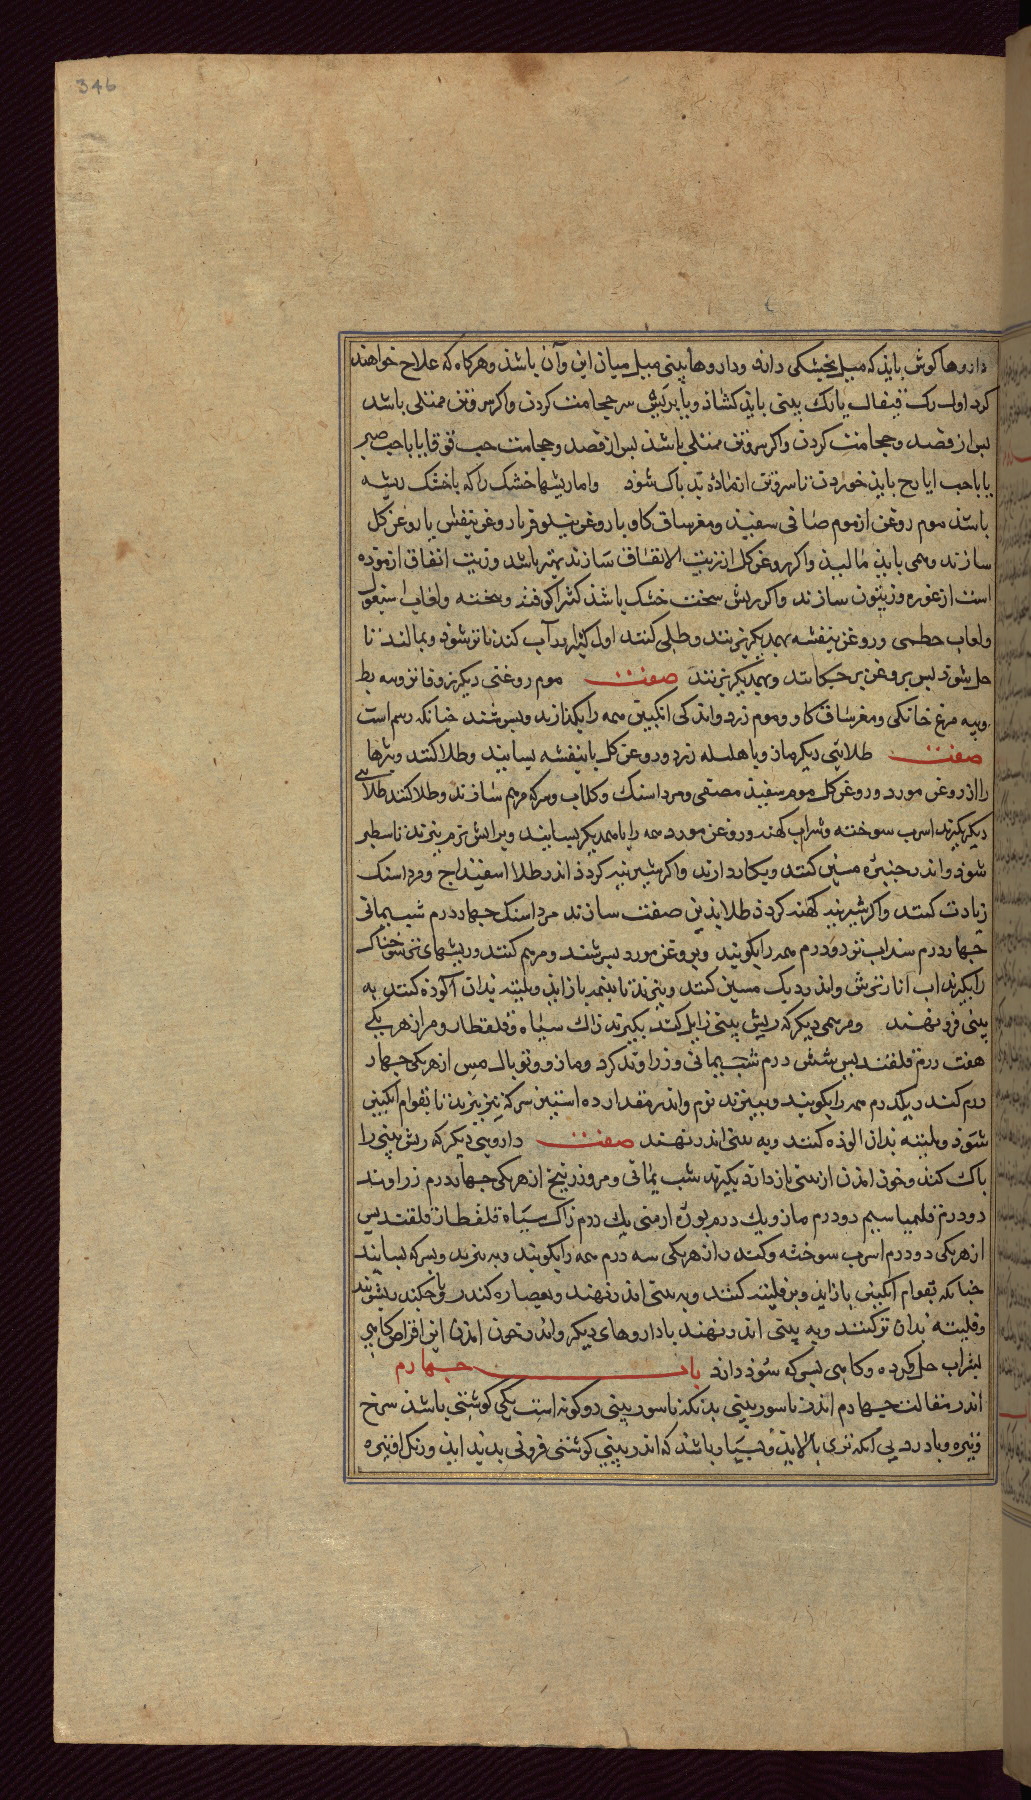 346
داروها کوش بایذ که میل بخشکی دارد وداروها بینی میل میان این وآن باشذ وهرکاه که علاج خواهند
کرد اول رک قیفال یا رک بینی بایذ کشاذ ویا بر پس سر حجامت کردن واکر سر وتن ممتلی باشد
پس از فصد وحجامت کردن واکر سر وتن ممتلی باشذ پس از فصد وحجامت حب قوقایا یا حب صبر
یا حب ایارج بایذ خوردن تا سر وتن از ماده بد پاک شوذ واما ریشها خشک را که با خشک ریشه
باشذ موم روغن از موم صافی سفیذ ومغز ساق کاو با روغن نیلوفر یا روغن بنفش یا روغن کل
سازند وهمی بایذ مالیذ واکر روغن کل از زیت الانفاق سازند بهتر باشد وزیت انفاق
است از غوره زیتون سازند واکر ریش سخت خشک باشذ کثیرا کوفته وبیخته ولعاب اسبغول
ولعاب خطمی وروغن بنفشه بهمدیکر بزنند وطلی کنند اول کثیرا بر آب کنند تا تر شوذ وبمالند تا
حل شوذ پس بروغن بر چکانند وبهمدیکر بزنند صفت موم روغنی دیکر زوفا تر وپیه بط
وپیه مرغ خانکی ومغز ساق کاو وموم زرد واندکی انکبین همه را بکذازند وبسرشند چنانکه رسم است
صفت طلایی دیکر مازو با هلیله زرد وروغن کل یا بنفشه بسایند وطلا کنند
را از روغن مورد وروغن کل موم سفیذ مصفی ومرداسنک وکلاب وسرکه مرهم سازند وطلا کنند طلائی
دیکر بکیرند اسرب سوخته وشراب کهنه وروغن مورد همه را با همدیکر بسایند وبر آتش نرم بپزند تا سطبر
شوذ واندر حنبره مسین کنند وبکار دارند واکر ریش بینی کرد ذ اندر طلا اسفیداج ومرداسنک
زیادت کنند واکر ریش بینی کهنه کردذ طلا بذین صفت سازند مرداسنک چهار درم شب یمانی
چهار درم سداب تر دو درم همه را بکوبند وبروغن مورد بسرشند ومرهم کنند وریشهای بینی شوخناک
را بکیرند اب انار ترش واندر دیک مسین کنند وبپزند تا بنیمه باز آیذ وفلیته بدان آلوذه کنند به
بینی فرو نهند ومرهمی دیکر که ریش بینی زایل کند بکیرند زاک سیاه وقلقطار ومر از هر یکی
هفت درم قلقند بیس شش درم شب یمانی وزراوند کرد ومازو وتوبال مس از هر یکی چهار
درم کندر یکدرم همه را بکوبند وببیزند نرم واندر مقدار ده استیر سرکه تیز بپزند تا بقوام انکبین
شوذ وفلیته بدان الوذه کنند وبه بینی اندر نهند صفت دارویی دیکر که ریش بینی را
پاک کند وخون امذن از بینی باز دارد بکیرند شب یمانی ومر وزرنیخ از هر یکی چهار درم زراوند
دو درم قلیمیا سیم دو درم مازو یک درم بوره ارمنی یک درم زاک سیاه قلقطار قلقندیس
از هر یکی دو درم اسرب سوخته وکندر از هر یکی سه درم همه را بکوبند وبه بیزند وبسرکه بسایند
چنانکه بقوام انکبین باز ایذ وبر فلیته کنند وبه بینی اندر نهند وبعصاره کندر
وفلیته بدان تر کنند وبه بینی اندر نهند با داروهای دیکر واندر خون امذن این اقراص کاهی
بشراب حل کرده وکاهی بسرکه سوذ دارذ باب چهارم
اندر مقالت چهارم اندر ناسور بینی بدانکه ناسور بینی دو کونه است یکی کوشتی باشذ سرخ
وتیره وبا درد بی انکه تری پالایذ وبسیار باشذ که اندر بینی کوشتی فزونی بدید ایذ ورنک او تیره